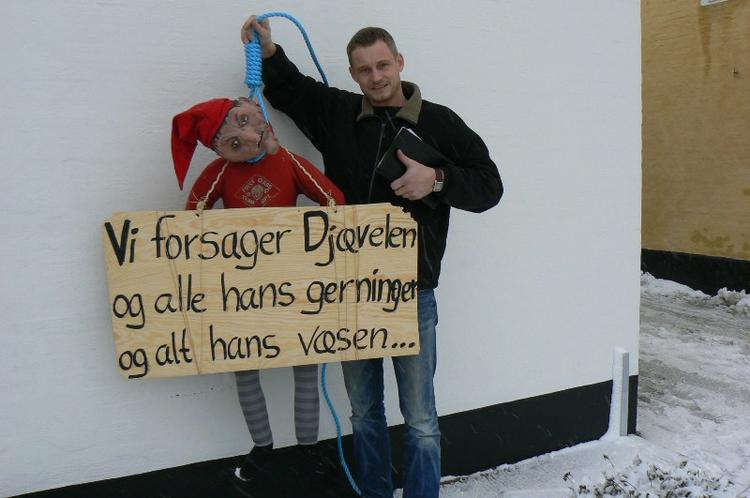 Vi forsager Djævelen
og alle hans gerninger
og alt hans væsen...